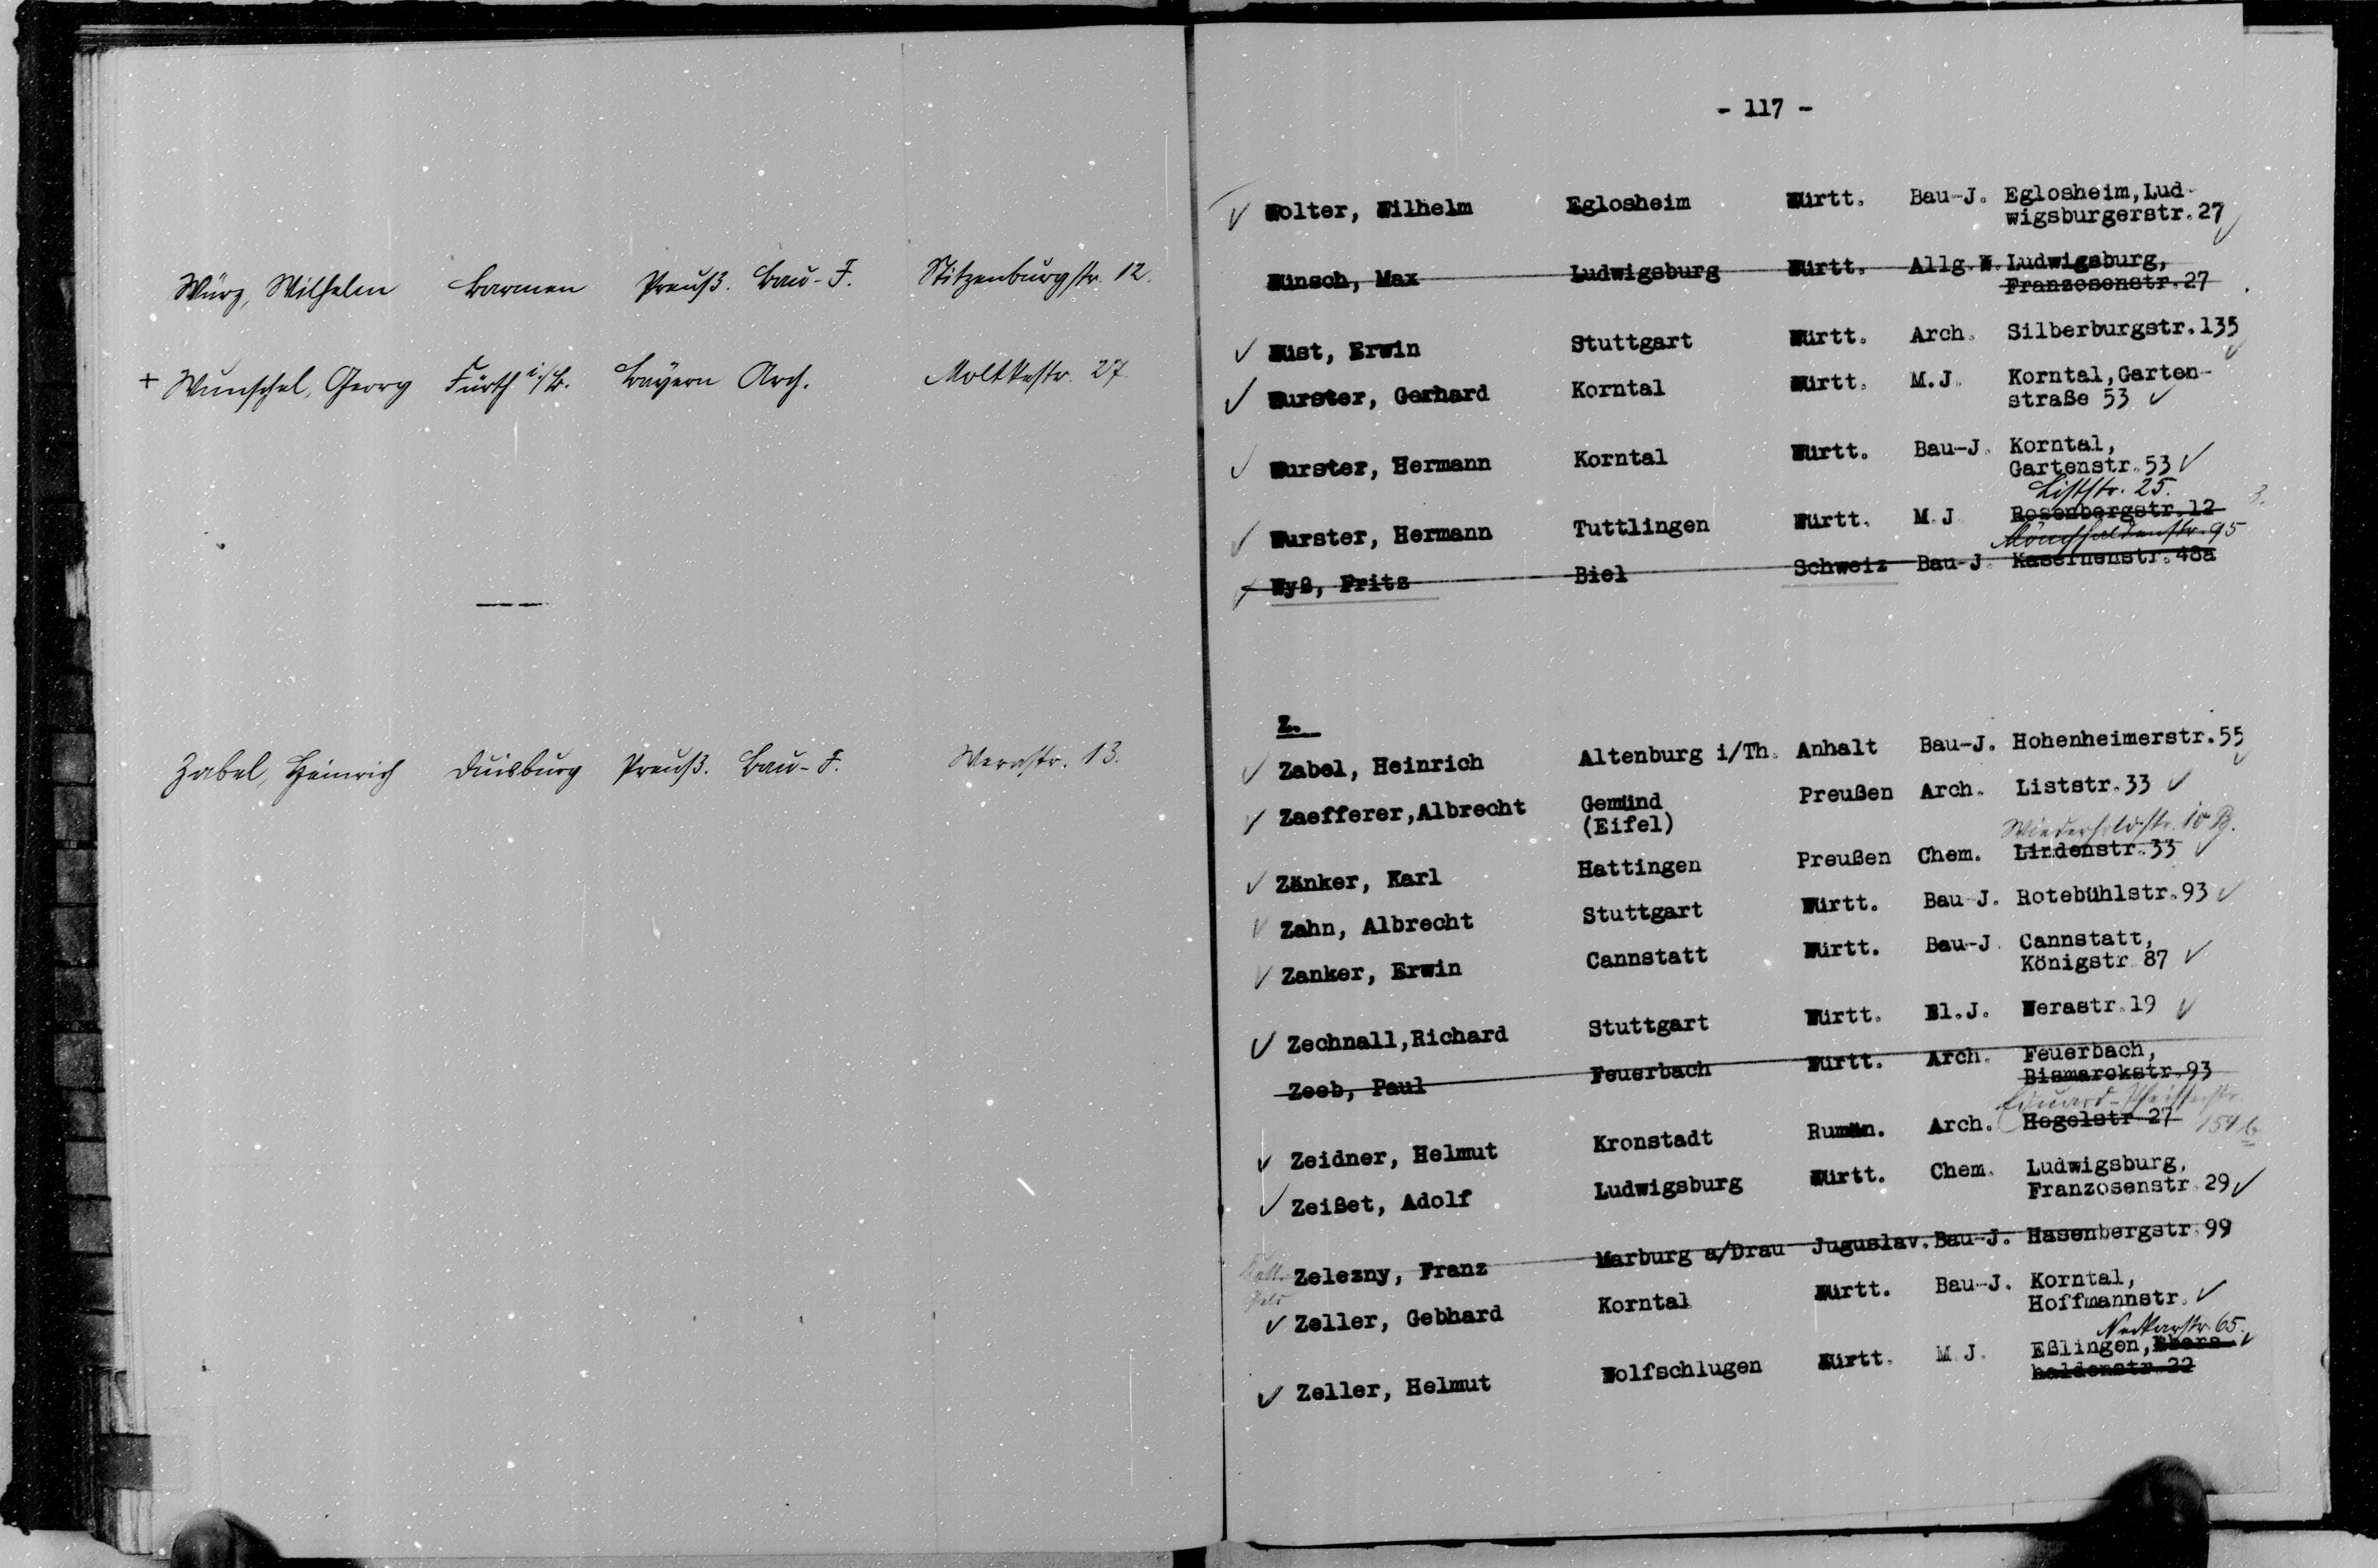 Würz, Wilhelm Barmen Preuß. Bau-J. Stitzenburgstr. 12.
+ Wunschel, Georg Fürth i/B. Bayern Arch. Moltkestr. 27.
Zabel, Heinrich Duisburg Preuß. Bau-J. Werastr. 13.
- 117 -
✓ Wolter, Wilhelm Eglosheim Württ. Bau-J. Eglosheim, Lud-
wigsburgerstr. 27 ✓
Wünsch, Max Ludwigsburg Württ. Allg.W. Ludwigsburg,
Franzosenstr. 27
✓ Wüst, Erwin Stuttgart Württ. Arch. Silberburgstr. 135 ✓
✓ Wurster, Gerhard Korntal Württ. M.J. Korntal, Garten-
straße 53 ✓
✓ Wurster, Hermann Korntal Württ. Bau-J. Korntal,
Gartenstr. 53 ✓
Liststr. 25.
✓ Wurster, Hermann Tuttlingen Württ. M.J. Rosenbergstr. 12 3.
Mönchhaldenstr. 95
Wyß, Fritz Biel Schweiz Bau-J. Kasernenstr. 48a
Z.
✓ Zabel, Heinrich Altenburg i/Th. Anhalt Bau-J. Hohenheimerstr. 55 ✓
✓ Zaefferer, Albrecht Gemünd Preußen Arch. Liststr. 33 ✓
(Eifel)
Wiederholdstr. 10
✓ Zänker, Karl Hattingen Preußen Chem. Lindenstr. 33 ✓
✓ Zahn, Albrecht Stuttgart Württ. Bau-J. Rotebühlstr. 93 ✓
✓ Zanker, Erwin Cannstatt Württ. Bau-J. Cannstatt,
Königstr. 87 ✓
✓ Zechnall, Richard Stuttgart Württ. El.J. Werastr. 19 ✓
Zeeb, Paul Feuerbach Württ. Arch. Feuerbach,
Bismarckstr. 93
Eduard-Pfeifferstr.
✓ Zeidner, Helmut Kronstadt Rumän. Arch. Hegelstr. 27 154 b
✓ Zeißet, Adolf Ludwigsburg Württ. Chem. Ludwigsburg,
Franzosenstr. 29 ✓
Zelezny, Franz Marburg a/Drau Juguslav. Bau-J. Hasenbergstr. 99
✓ Zeller, Gebhard Korntal Württ. Bau-J. Korntal,
Hoffmannstr. ✓
Neckarstr. 65.
✓ Zeller, Helmut Wolfschlugen Württ. M.J. Eßlingen, Ebers- ✓
haldenstr. 22